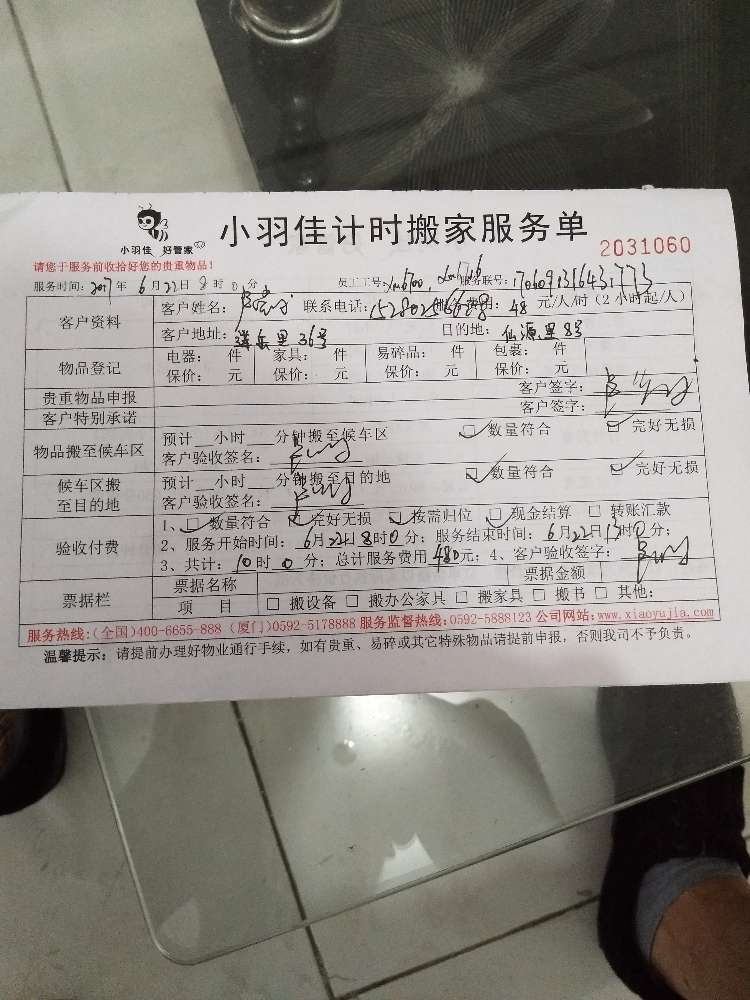 小羽佳 好管家
小羽佳计时搬家服务单
2031060
请您于服务前收拾好您的贵重物品!
服务时间: 2017年 6月22日 8时0分 员工工号: 服务联号:
客户资料 客户姓名: 联系电话: 服务费用: 48 元/人/时(2小时起/人)
客户地址: 36号 目的地: 仙源里8号
物品登记 电器: 件 家具: 件 易碎品: 件 包裹: 件
保价: 元 保价: 元 保价: 元 保价: 元
贵重物品申报 客户签字:
客户特别承诺 客户签字:
物品搬至候车区 预计 小时 分钟搬至候车区 数量符合 完好无损
客户验收签名:
候车区搬至目的地 预计 小时 分钟搬至目的地 数量符合 完好无损
客户验收签名:
验收付费 1、数量符合 完好无损 按需归位 现金结算 转账汇款
2、服务开始时间: 6月22日8时0分; 服务结束时间: 6月22日13时0分;
3、共计: 10时0分; 总计服务费用 480元; 4、客户验收签字:
票据栏 票据名称 票据金额
项 目 搬设备 搬办公家具 搬家具 搬书 其他:
服务热线:(全国)400-6655-888 (厦门)0592-5178888 服务监督热线:0592-5888123 公司网站:www.xiaoyujia.com
温馨提示: 请提前办理好物业通行手续, 如有贵重、易碎或其它特殊物品请提前申报, 否则我司不予负责。